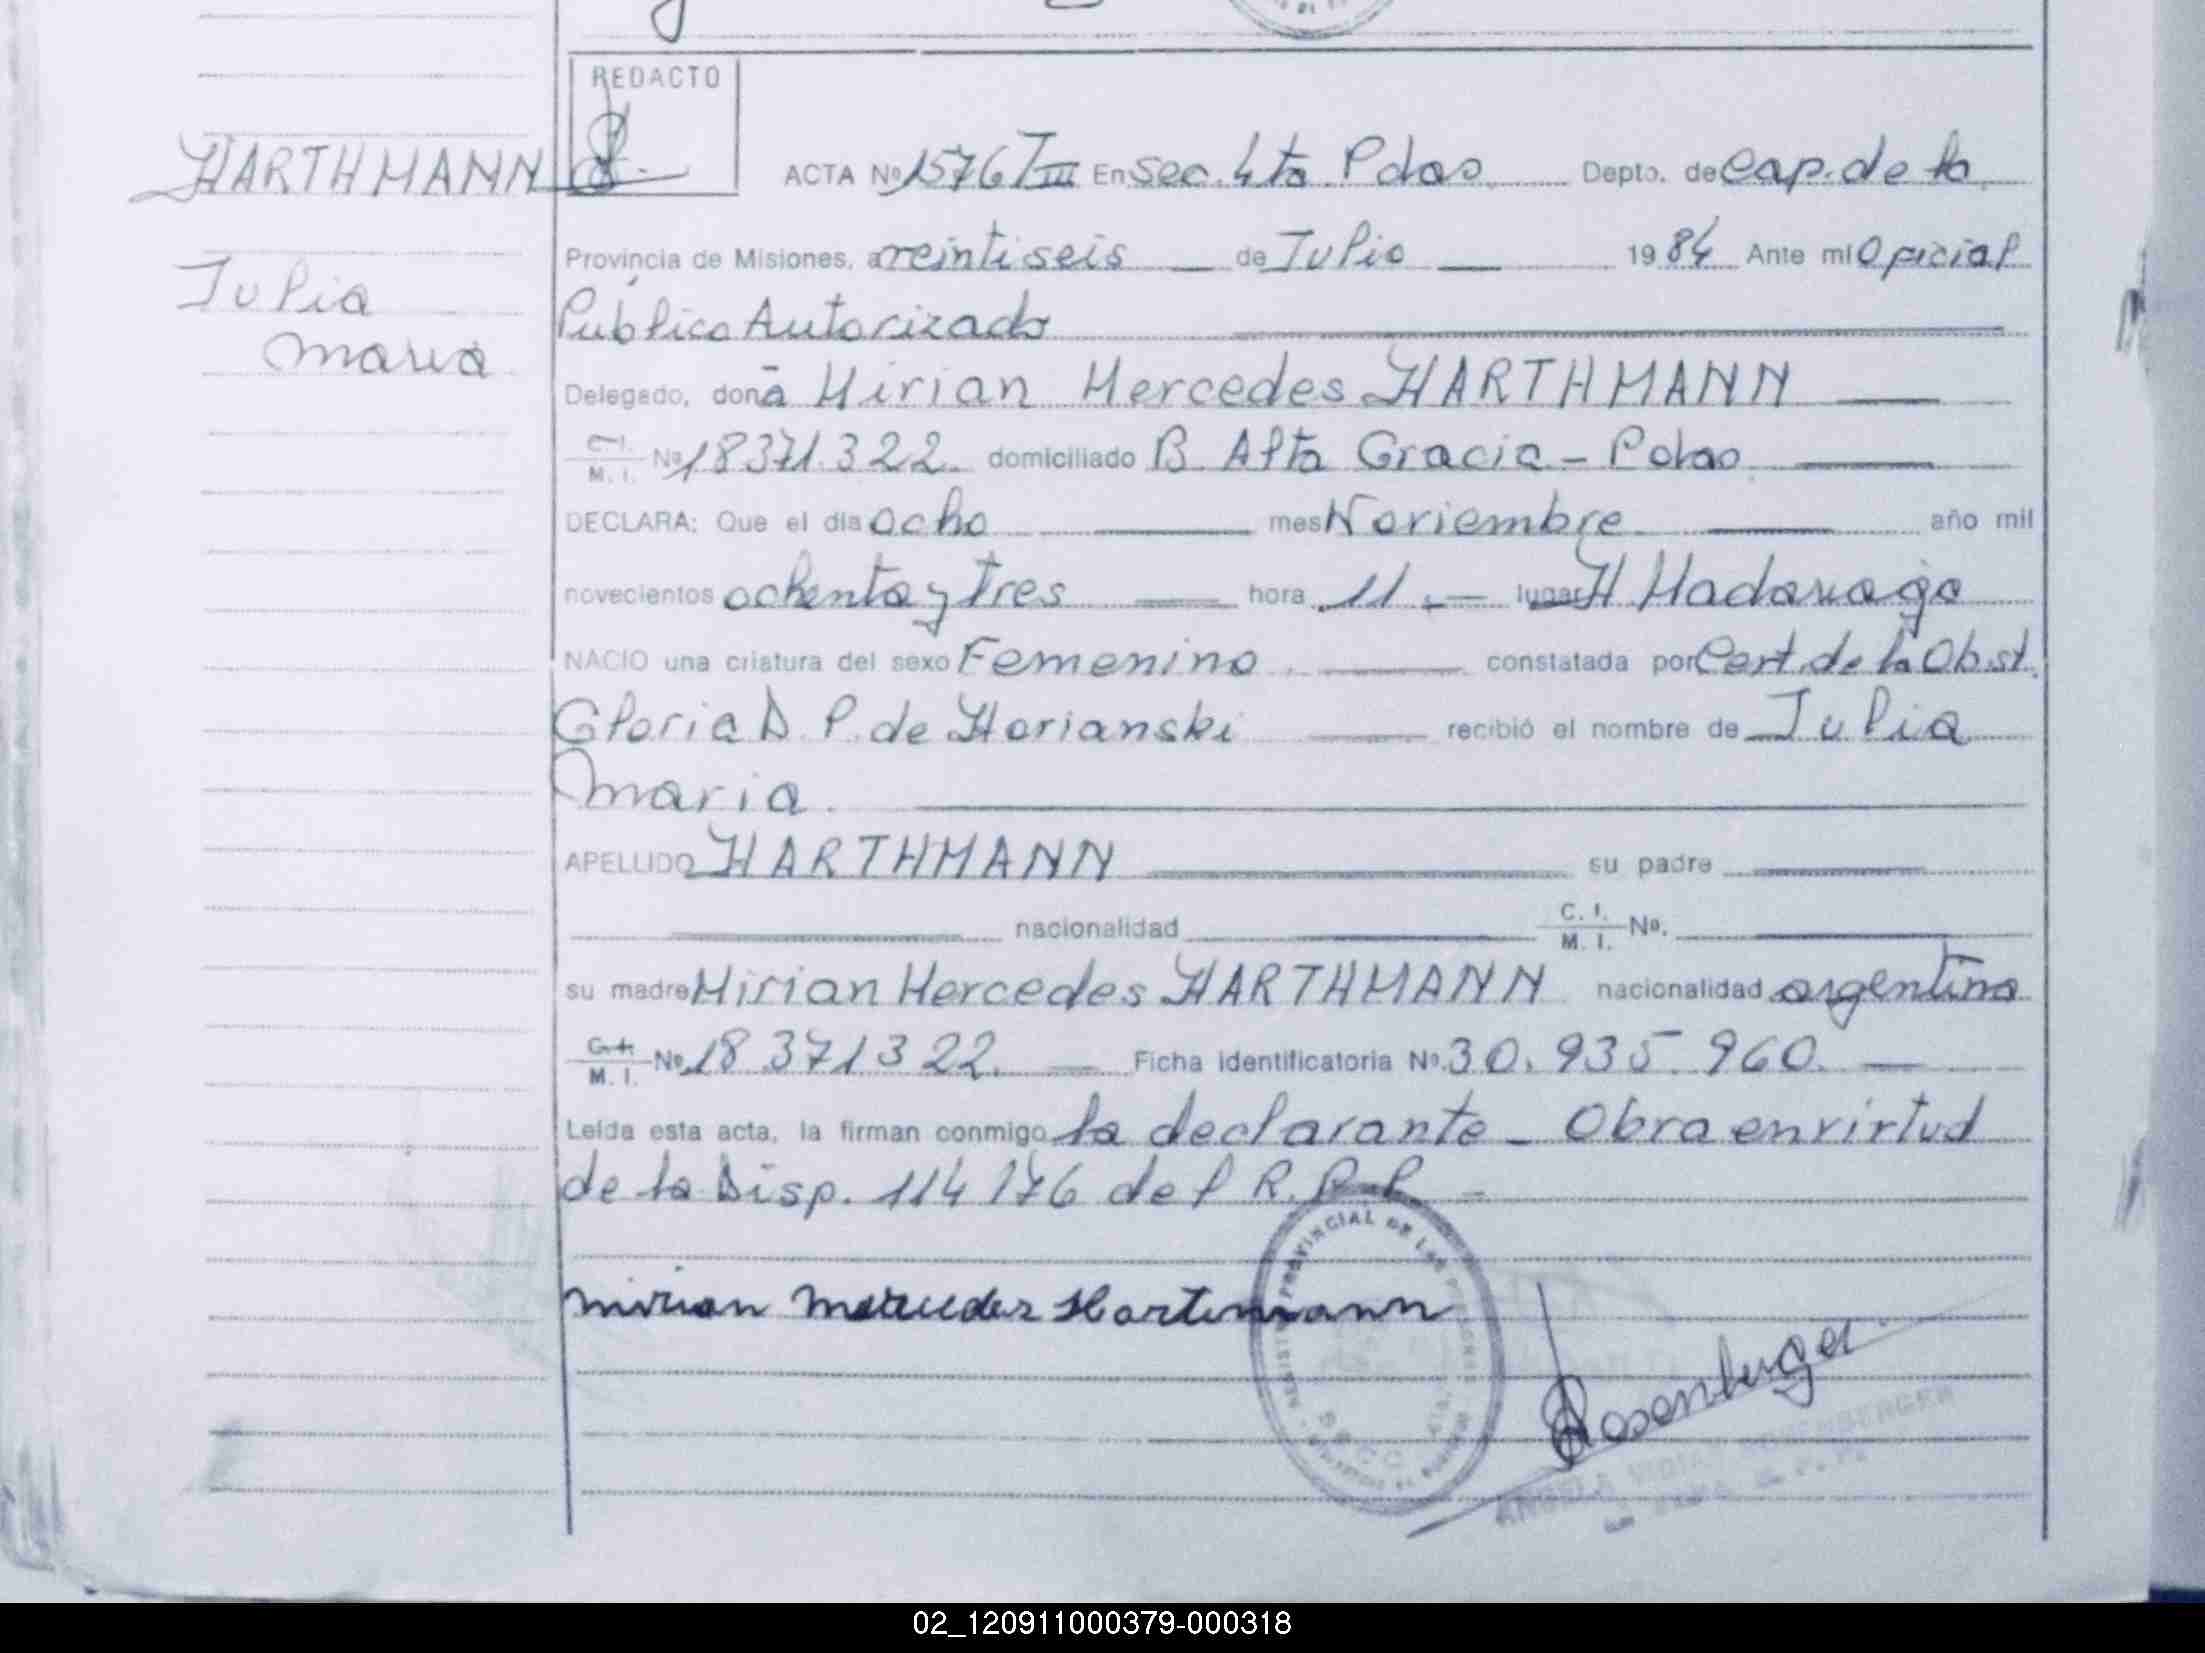 REDACTO
HARTHMANN
ACTA Nº 1576 TIII En Sec. 4ta Pdas. Depto. de Cap. de la
Provincia de Misiones, a veintiseis de Julio 1984 Ante mí Oficial
Julia
Público Autorizado
Maria
Delegado, doña Mirian Mercedes HARTHMANN
C. I.
M. I. Nº 18371.322 domiciliado B. Alta Gracia - Pdas
DECLARA: Que el día ocho mes Noviembre año mil
novecientos ochenta y tres hora 11.- lugar H Madariaga
NACIO una criatura del sexo Femenino constatada por Cert. de la Obst.
Gloria D. P. de Horianski recibió el nombre de Julia
Maria.
APELLIDO HARTHMANN su padre
nacionalidad C. I.
M. I. Nº.
su madre Mirian Mercedes HARTHMANN nacionalidad argentina
C. I.
M. I. Nº 18.371322. Ficha identificatoria Nº. 30.935.960.
Leída esta acta, la firman conmigo la declarante - Obra en virtud
de la Disp. 114/76 del R.P.P.
REGISTRO PROVINCIAL DE LAS PERSONAS
Mirian Mercedes Hartmann
Rosenberger
ROSENBERGER
02_120911000379-000318